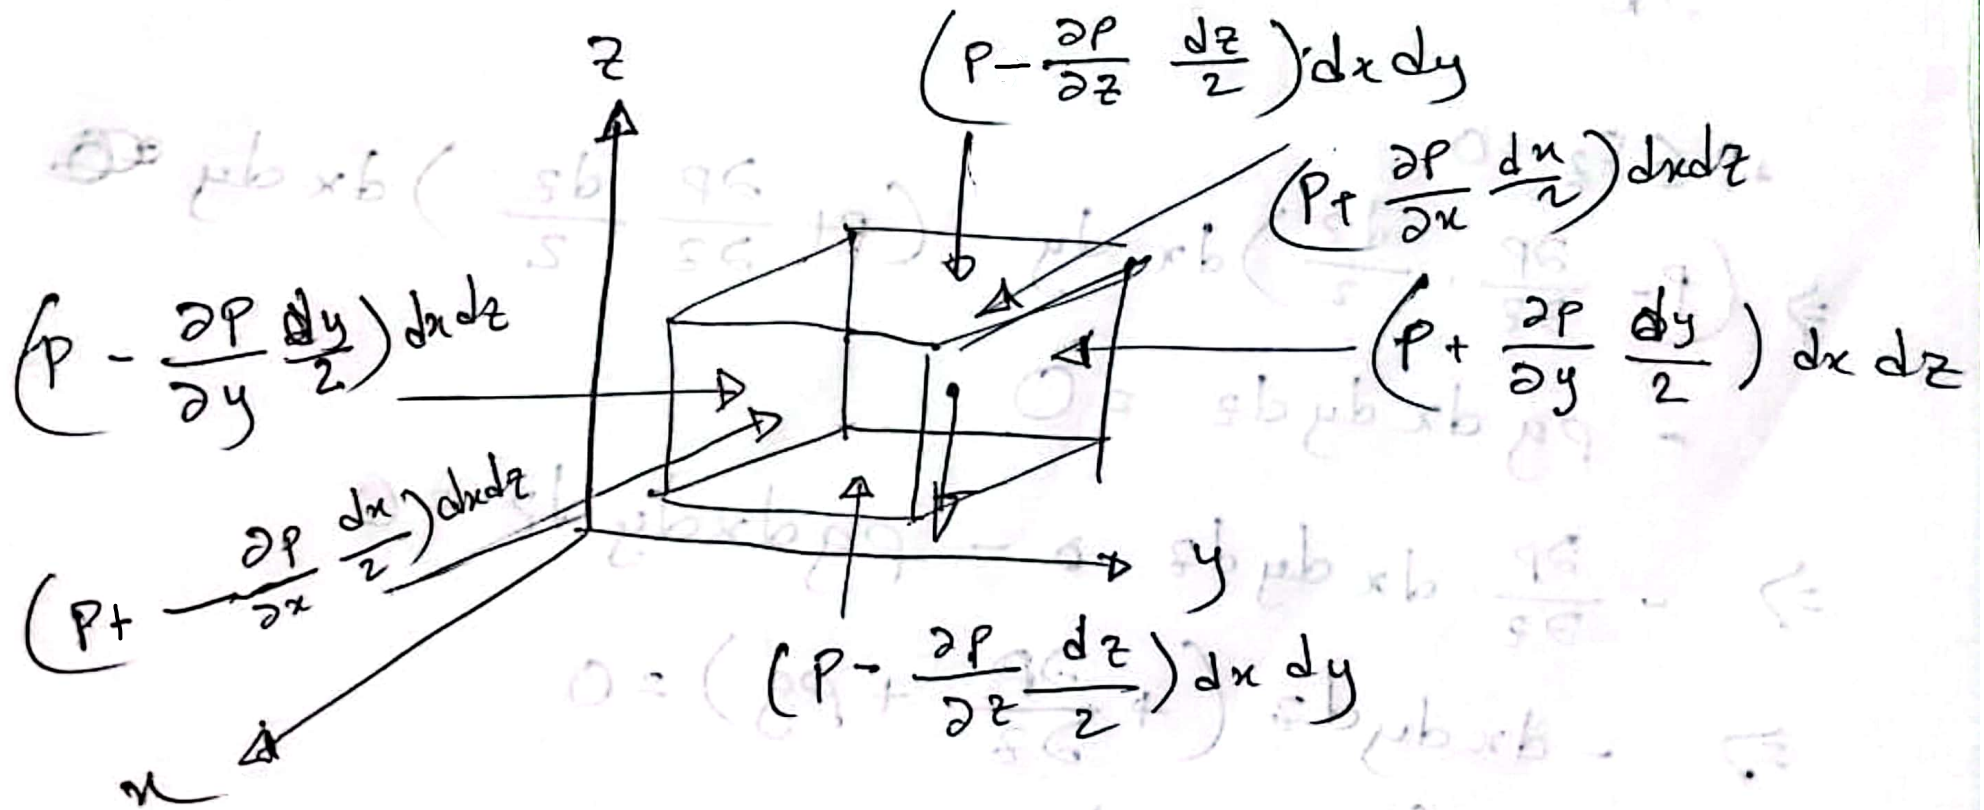 z
(P - ∂P/∂z dz/2) dx dy
(P + ∂P/∂x dx/2) dx dz
(P - ∂P/∂y dy/2) dx dz
(P + ∂P/∂y dy/2) dx dz
(P + - ∂P/∂x dx/2) dx dz
y
(P - ∂P/∂z dz/2) dx dy
x